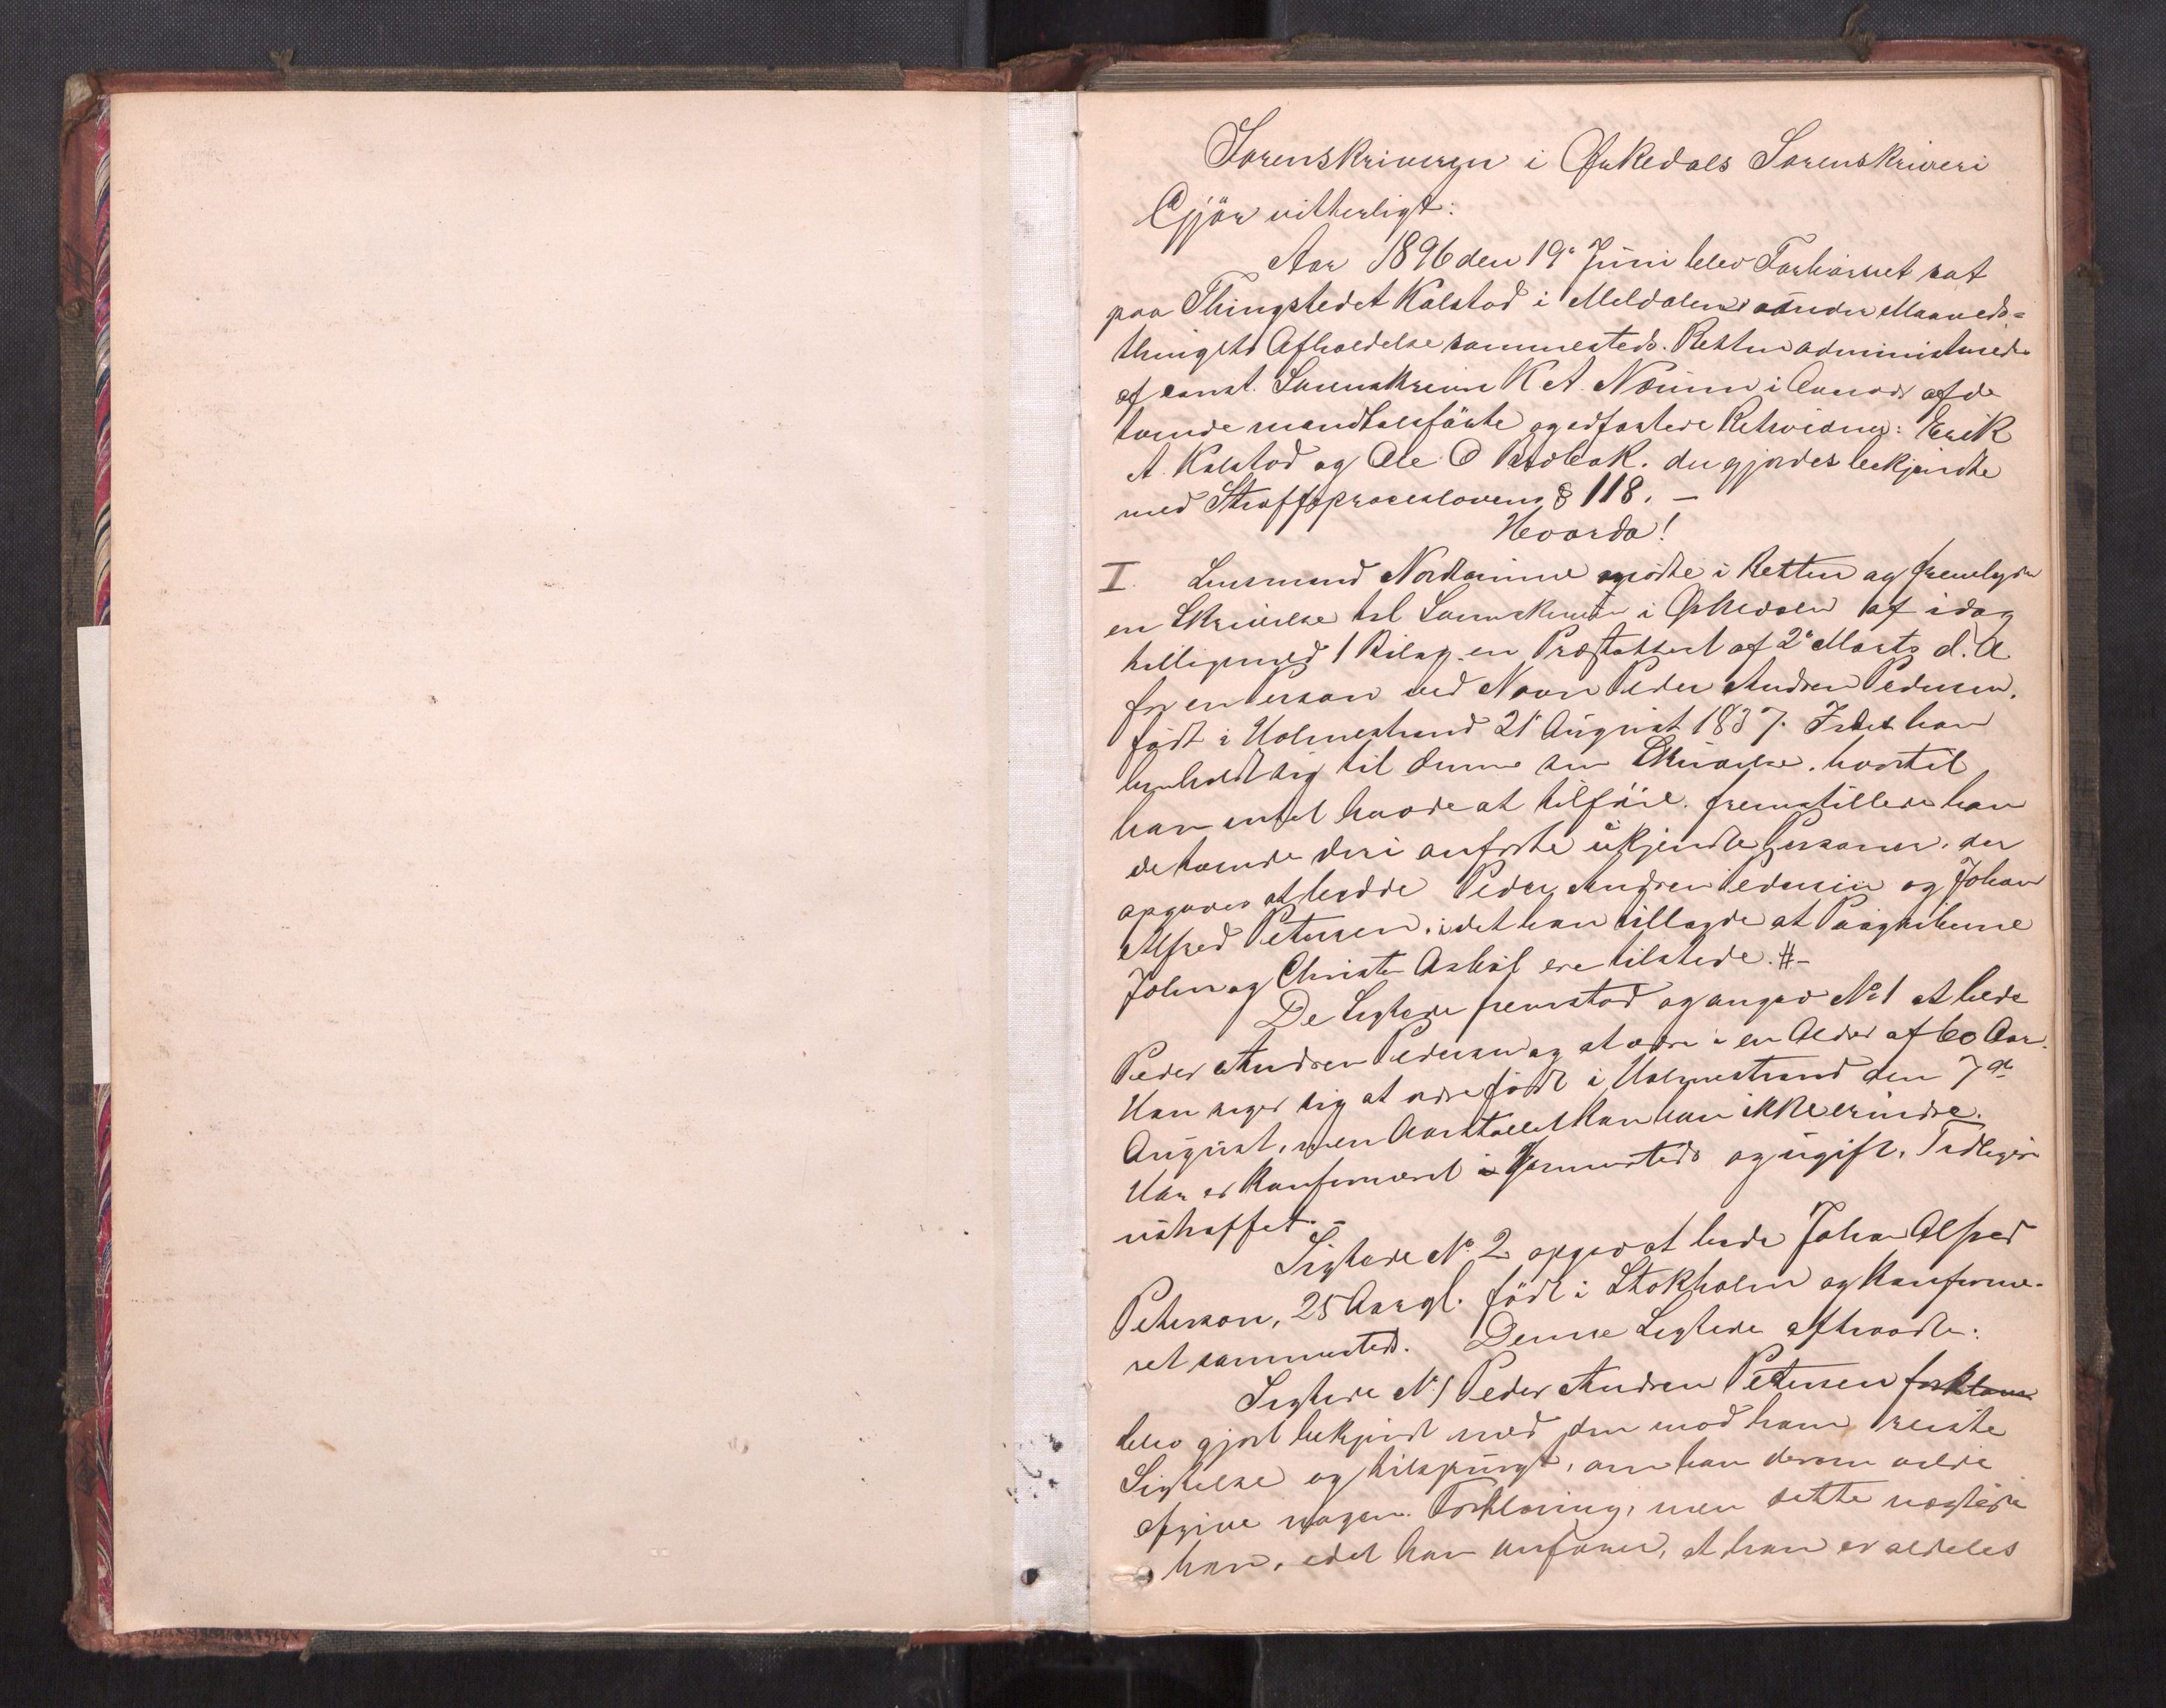 Sorenskriveren i Ørkedals Sorenskriveri
Gjør vitterligt:
Aar 1896 den 19de Juni blev Forhørsret sat
paa Thingstedet Kalstad i Meldalen under Maaneds-
thingets Afholdelse sammesteds. Retten administreredes
af const. Sorenskriver K A. i Overvær af de
tvende mandtalsførte og edfæstede Retsvidner: Erik
A. Kalstad og Ole O der gjordes bekjendte
med Straffeproceslovens § 118. —
Hvorda!
I. Lensmand mødte i Retten og fremlagde
en Skrivelse til Sorenskriveren i Ørkedalen af idag
tilligemed 1 Bilag en Præstattest af 2de Marts d. A.
for en Person ved Navn Peder Andrea Pedersen,
født i Holmestrand 21 August 1837. Idet han
henholdt sig til denne sin Skrivelse, hvortil
han intet havde at tilføie, fremstillede han
de tvende deri anførte ukjendte Personer, der
opgaves at hedde Peder Andrea Pedersen og Johan
Alfred Petersen, idet han tillagde at Paagriberne
John og Christen Asbøl ere tilstede. #–
De Sigtede fremstod og angav No 1 at hede
Peder Andrea Pedersen og at være i en Alder af 60 Aar.
Han siger sig at være født i Holmestrand den 7de
August, men Aarstallet kan han ikke erindre.
Han er konfirmeret i sammesteds og ugift. Tidligere
ustraffet. –
Sigtede No 2 opgav at hede Johan Alfred
Peterson, 25 Aar gl. født i Stokholm og konfirme-
ret sammesteds. Denne Sigtede aftraadte.
Sigtede No 1 Peder Andrea Petersen forklarer
blev gjort bekjendt med den mod ham reiste
Sigtelse og tilspurgt, om han derom vilde
afgive nogen Forklaring, men dette negtede
han, idet han anfører, at han er aldeles